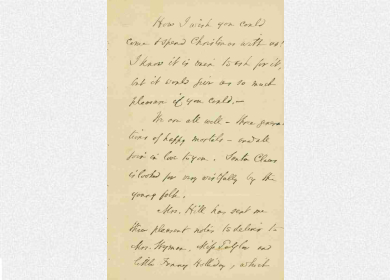 How I wish you could
come & spend Christmas with us!
I know it is vain to ask for it,
but it would give us so much
pleasure if you could. —
We are all well — three genera-
tions of happy mortals — and all
join in love to you. Santa Claus
is looked for very wistfully by the
young folk.
Mrs. Hill has sent me
three pleasant notes to deliver to
Mrs. Wyman, Miss and
little Fanny Holliday, which